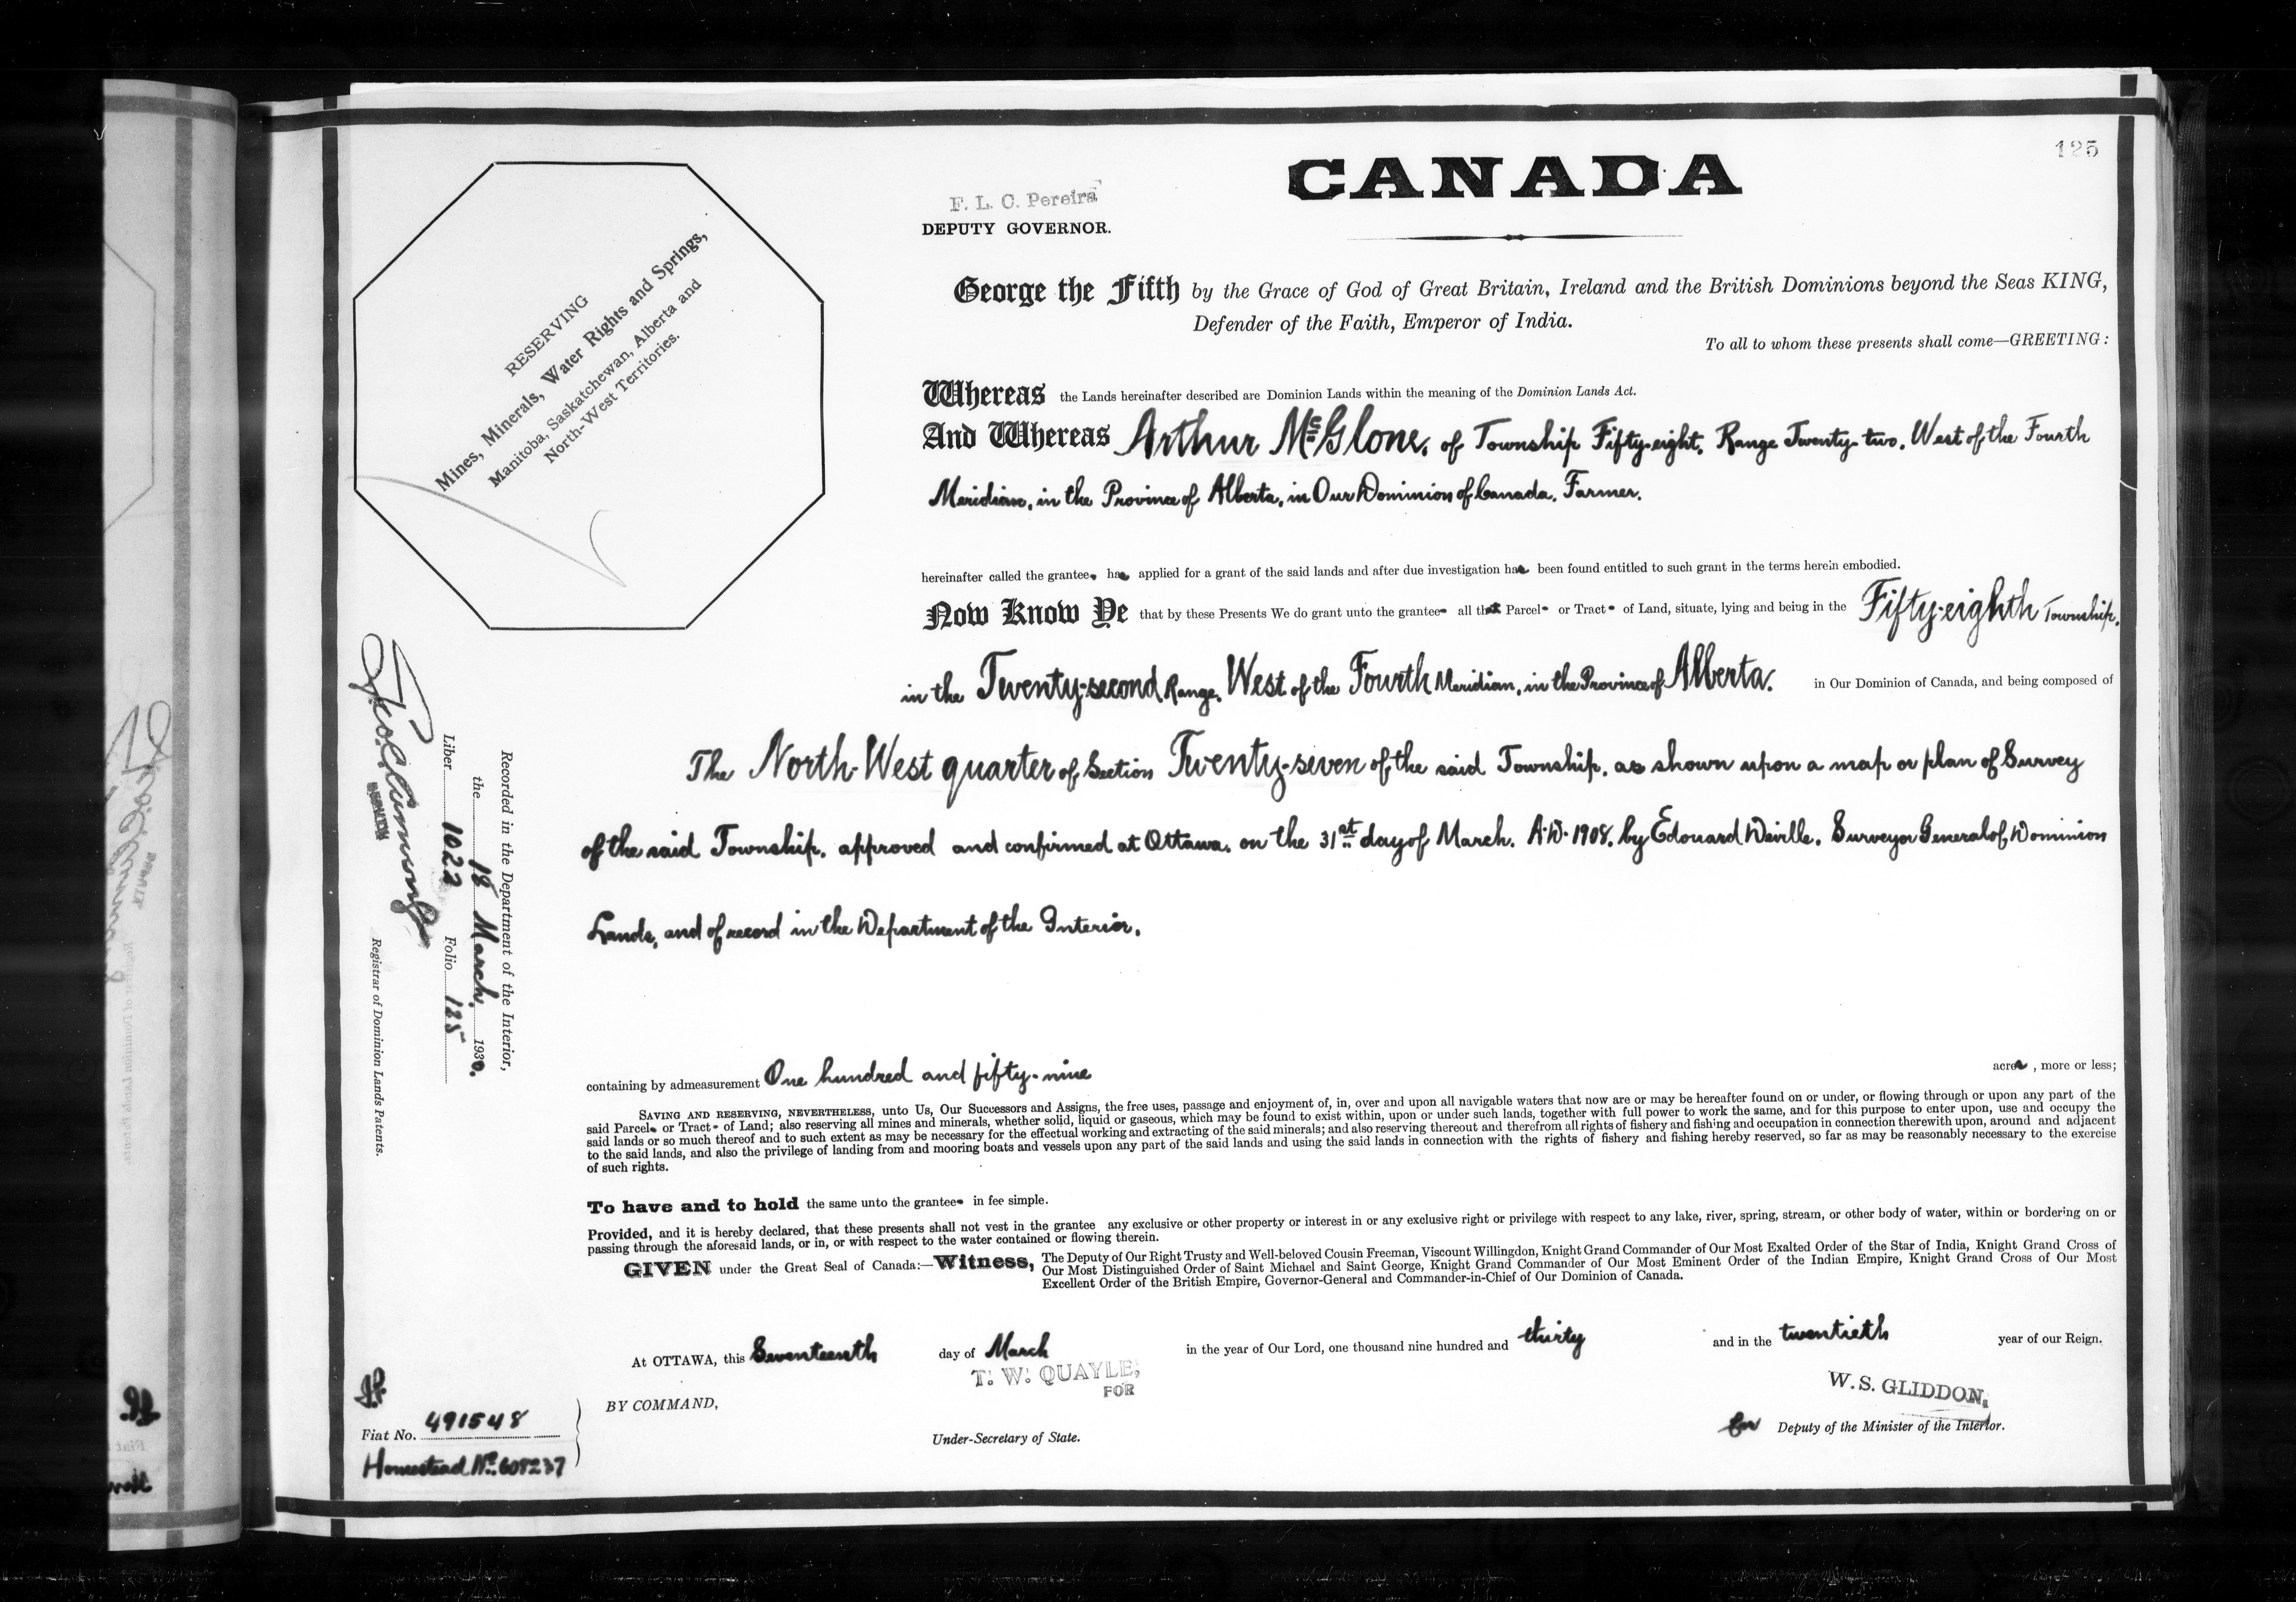 125
CANADA
F. L. C. Pereira
DEPUTY GOVERNOR.
RESERVING
Mines, Minerals, Water Rights and Springs,
Manitoba, Saskatchewan, Alberta and
North-West Territories.
George the Fifth by the Grace of God of Great Britain, Ireland and the British Dominions beyond the Seas KING,
Defender of the Faith, Emperor of India.
To all to whom these presents shall come—GREETING:
Whereas the Lands hereinafter described are Dominion Lands within the meaning of the Dominion Lands Act.
And Whereas Arthur McGlone, of Township Fifty-eight, Range Twenty-two, West of the Fourth
Meridian, in the Province of Alberta, in Our Dominion of Canada, Farmer.
hereinafter called the grantee, has applied for a grant of the said lands and after due investigation has been found entitled to such grant in the terms herein embodied.
Now Know Ye that by these Presents We do grant unto the grantee all that Parcel or Tract of Land, situate, lying and being in the Fifty-eighth Township,
in the Twenty-second Range, West of the Fourth Meridian, in the Province of Alberta, in Our Dominion of Canada, and being composed of
The North-West quarter of Section Twenty-seven of the said Township, as shown upon a map or plan of Survey
of the said Township, approved and confirmed at Ottawa, on the 31st day of March, A.D. 1908, by Edouard Deville, Surveyor General of Dominion
Lands, and of record in the Department of the Interior.
Recorded in the Department of the Interior,
the 18 March, 1930.
Liber 1022 Folio 125
Registrar of Dominion Lands Patents.
containing by admeasurement One hundred and fifty-nine acres, more or less;
SAVING AND RESERVING, NEVERTHELESS, unto Us, Our Successors and Assigns, the free uses, passage and enjoyment of, in, over and upon all navigable waters that now are or may be hereafter found on or under, or flowing through or upon any part of the
said Parcel or Tract of Land; also reserving all mines and minerals, whether solid, liquid or gaseous, which may be found to exist within, upon or under such lands, together with full power to work the same, and for this purpose to enter upon, use and occupy the
said lands or so much thereof and to such extent as may be necessary for the effectual working and extracting of the said minerals; and also reserving thereout and therefrom all rights of fishery and fishing and occupation in connection therewith upon, around and adjacent
to the said lands, and also the privilege of landing from and mooring boats and vessels upon any part of the said lands and using the said lands in connection with the rights of fishery and fishing hereby reserved, so far as may be reasonably necessary to the exercise
of such rights.
To have and to hold the same unto the grantee in fee simple.
Provided, and it is hereby declared, that these presents shall not vest in the grantee any exclusive or other property or interest in or any exclusive right or privilege with respect to any lake, river, spring, stream, or other body of water, within or bordering on or
passing through the aforesaid lands, or in, or with respect to the water contained or flowing therein.
GIVEN under the Great Seal of Canada:—Witness, The Deputy of Our Right Trusty and Well-beloved Cousin Freeman, Viscount Willingdon, Knight Grand Commander of Our Most Exalted Order of the Star of India, Knight Grand Cross of
Our Most Distinguished Order of Saint Michael and Saint George, Knight Grand Commander of Our Most Eminent Order of the Indian Empire, Knight Grand Cross of Our Most
Excellent Order of the British Empire, Governor-General and Commander-in-Chief of Our Dominion of Canada.
At OTTAWA, this Seventeenth day of March in the year of Our Lord, one thousand nine hundred and thirty and in the twentieth year of our Reign.
T. W. QUAYLE,
FOR
W. S. GLIDDON,
BY COMMAND,
for Deputy of the Minister of the Interior.
Under-Secretary of State.
Fiat No. 491548
Homestead No. 608237